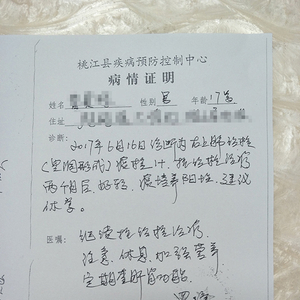 桃江县疾病预防控制中心
病情证明
姓名 性别 男 年龄 17岁
住址
诊断:
2017年6月16日诊断为右上肺结核
(空洞形成)痰检2+,抗结核治疗
两个月后,好转,痰培养阳性,建议
休学。
医嘱:
继续抗结核治疗,
注意休息,加强营养
定期查肝肾功能